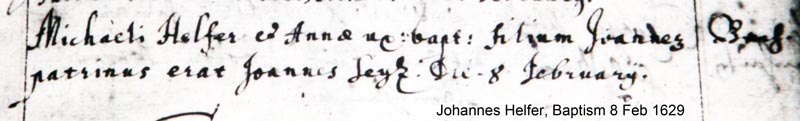 Michaeli Helfer et Annæ ux: bapt: filium Joannes
patrinus erat Joannes Die 8 February.
Johannes Helfer, Baptism 8 Feb 1629